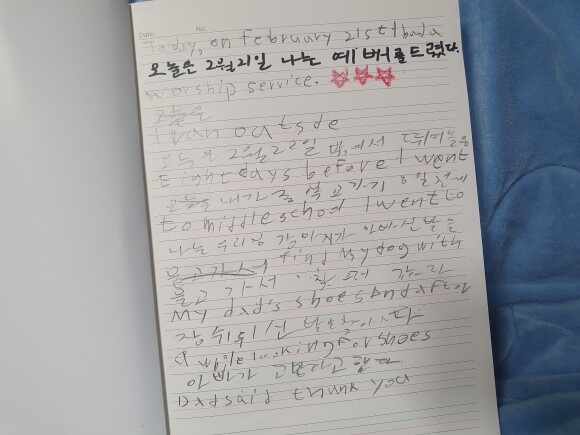 Date. No.
Today, on February 21st I had a
오늘은 2월21일 나는 예배를드렸다.
worship service.
오늘은
I ran outspe
오늘은 2월22일 밖에서
Eight days before I went
오늘은 내가 중학교가기 8일전에
to middle school I went to
나는 우리 강아지가 아빠신발을
find my dog with
물고가서
My dad's shoes and after
a while looking for shoes
아빠가 고맙다고 했다
Dad said thank you